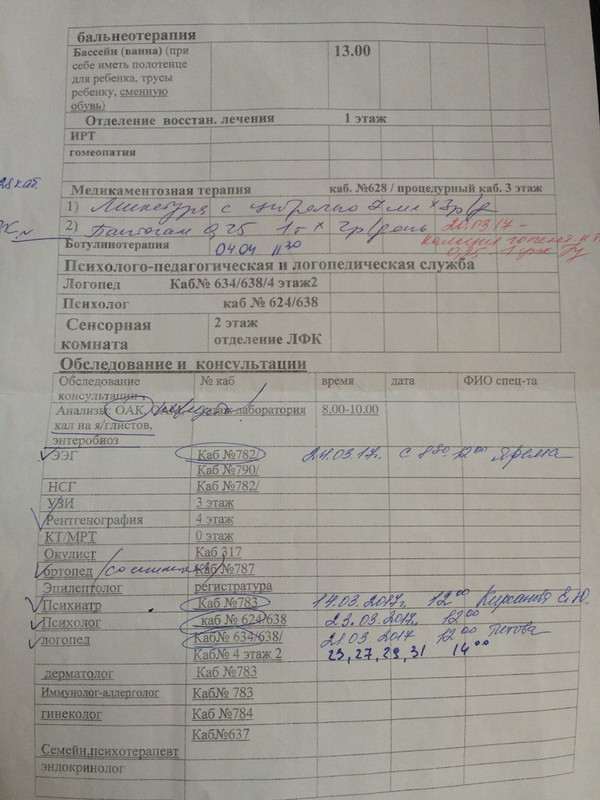 бальнеотерапия
Бассейн (ванна) (при себе иметь полотенце для ребенка, трусы ребенку, сменную обувь) 13.00
Отделение восстан. лечения 1 этаж
ИРТ
гомеопатия
Медикаментозная терапия каб. №628 / процедурный каб. 3 этаж
1) Микстура с цитралью
2) Пантогам 0,25 1т х 2р/день 20.03.17 -
Ботулинотерапия 04.04 11 30
0,25
Психолого-педагогическая и логопедическая служба
Логопед Каб№ 634/638/4 этаж2
Психолог каб № 624/638
Сенсорная комната 2 этаж отделение ЛФК
Обследование и консультации
Обследование консультации № каб время дата ФИО спец-та
Анализы: ОАК, лаборатория 8.00-10.00
кал на я/глистов,
энтеробиоз
ЭЭГ Каб №782/ 24.03.17г. с 12 00
Каб №790/
НСГ Каб №782/
УЗИ 3 этаж
Рентгенография 4 этаж
КТ/МРТ 0 этаж
Окулист Каб 317
ортопед Каб №787
Эпилептолог регистратура
Психиатр Каб №783 14.03.2017г. 12 00
Психолог каб № 624/638 23.03.2017. 12 00
логопед Каб№ 634/638/ 21.03.2017 12 00
Каб№ 4 этаж 2 23, 27, 29, 31 14 00
дерматолог Каб №783
Иммунолог-аллерголог Каб№ 783
гинеколог Каб №784
Каб№637
Семейн.психотерапевт
эндокринолог